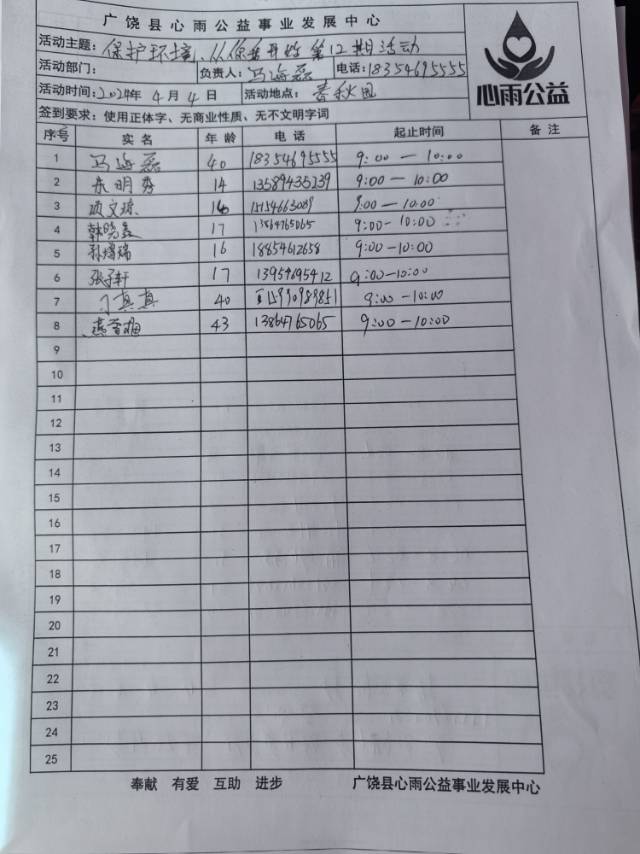 广饶县心雨公益事业发展中心
心雨公益
活动主题：保护环境、从你我开始第12期活动
活动部门： 负责人：马海磊 电话：18354695555
活动时间：2024年4月4日 活动地点：春秋园
签到要求：使用正体字、无商业性质、无不文明字词
序号 实名 年龄 电话 起止时间 备注
1 马海磊 40 18354695555 9:00—10:00
2 14 13589435239 9:00—10:00
3 16 9:00—10:00
4 韩 17 13864765065 9:00-10:00
5 16 18854612658 9:00-10:00
6 张子轩 17 9:00-10:00
7 丁真真 40 15990989851 9:00-10:00
8 燕 43 13864765065 9:00—10:00
9
10
11
12
13
14
15
16
17
18
19
20
21
22
23
24
25
奉献 有爱 互助 进步 广饶县心雨公益事业发展中心